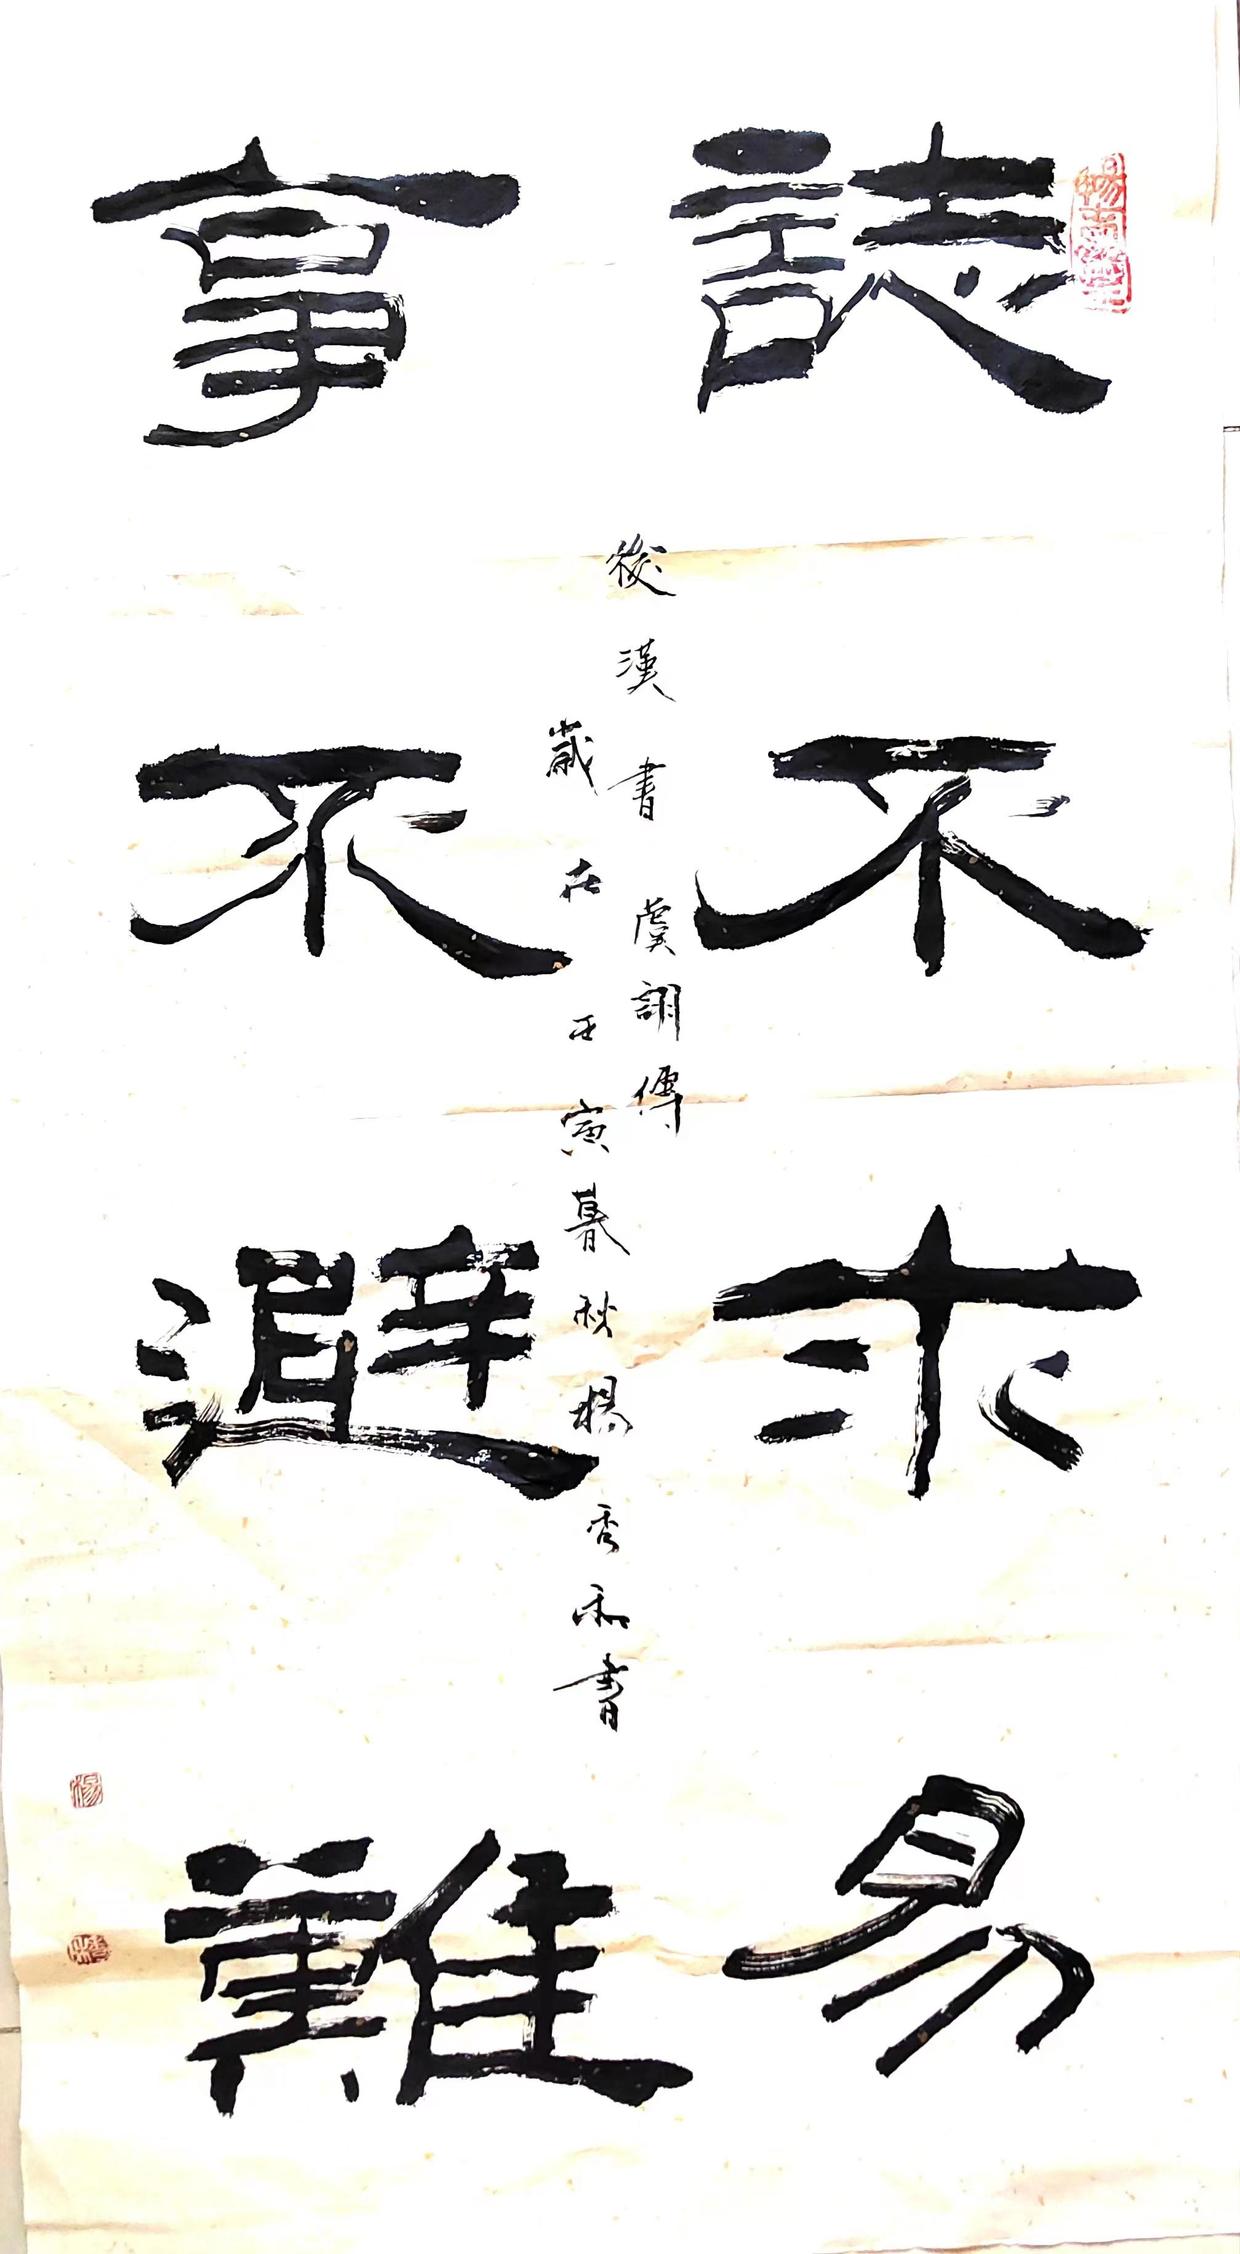 誌不求易
事不避難
後漢書虞詡傳
歲在壬寅暮秋楊秀和書